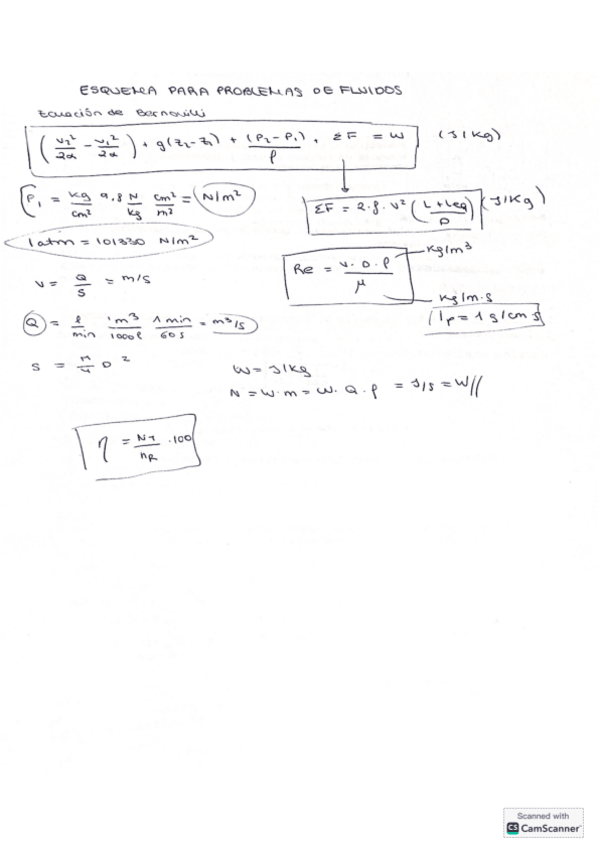 ESQUEMA PARA PROBLEMAS DE FLUIDOS
Ecuación de Bernouilli
(v₂²/2α - v₁²/2α) + g(z₂-z₁) + (P₂-P₁)/ρ + ΣF = W (J/kg)
P₁ = kg/cm² 9,8 N/kg cm²/m² = N/m²
ΣF = 2·f·v² (L+Leq/D) (J/kg)
1 atm = 101330 N/m²
Re = v·D·ρ/μ kg/m³
kg/m·s
1p = 1 g/cm s
v = Q/S = m/s
Q = l/min 1m³/1000l 1min/60s = m³/s
S = π/4 D²
W = J/kg
N = W·m = W·Q·ρ = J/s = W//
η = N_T/n_R ·100
Scanned with
CS CamScanner